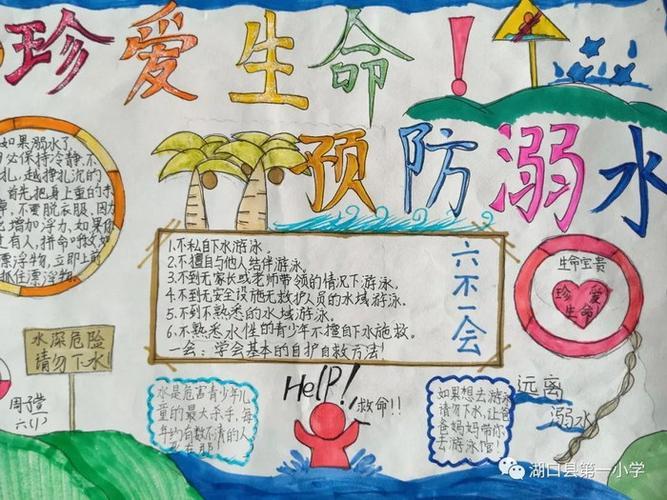 珍爱生命！
预防溺水
如果溺水了
必保持冷静，不
扎，越挣扎沉的
首先把身上重的
，不要脱衣服，因
增加浮力，如果你
有人，拼命呼救如
漂浮物，立即上前
抓住漂浮物
1.不私自下水游泳。
2.不擅自与他人结伴游泳。
3.不到无家长或老师带领的情况下游泳。
4.不到无安全设施无救护人员的水域游泳。
5.不到不熟悉的水域游泳。
6.不熟悉水性的青少年不擅自下水施救。
一会：学会基本的自护自救方法！
六不一会
生命宝贵
珍爱
生命
水深危险
请勿下水！
周子萱
六(1)
水是危害青少年儿
童的最大杀手，每
年均有数不清的人
死在那
HELP!
救命!!
如果想去游泳
请勿下水，让爸
爸妈妈带你
去游泳馆！
远离
溺水
湖口县第一小学